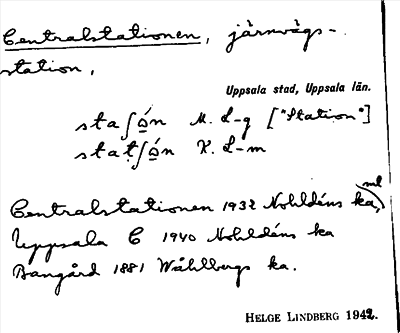 Centralstationen, järnvägs-
station,
Uppsala stad, Uppsala län.
staʃó̲n M. L-g ["Station"]
staṭʃó̲n K. L-m
ml
Centralstationen 1932 Nohldéns ka,
Uppsala C 1940 Nohldéns ka
Bangård 1881 Wåhlbergs ka.
HELGE LINDBERG 1942.